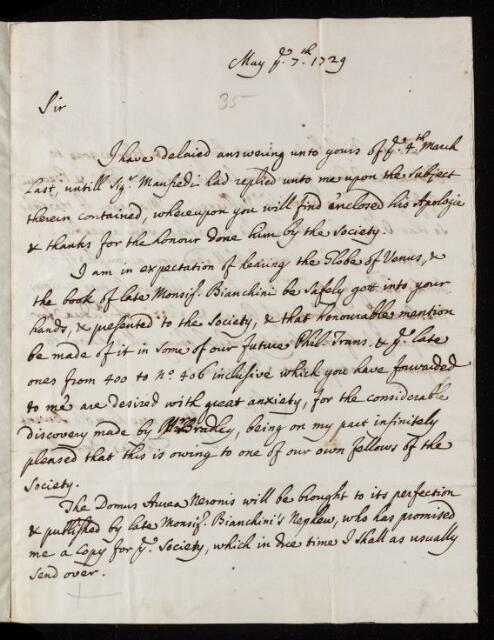 May yᵉ. 7.ᵗʰ 1729
35
Sir
I have delaied answering unto yours of yᵉ. 4ᵗʰ March
last, untill Sigʳ. Manfredi had replied unto me upon the subject
therein contained, whereupon you will find enclosed his Apologie
& thanks for the honour done him by the Society.
I am in expectation of hearing the Globe of Venus, &
the book of late Monsiʳ. Bianchini be safely gott into your
hands, & presented to the Society, & that honourable mention
be made of it in some of our future Phil. Trans. & yᵉ. late
ones from 400 to Nº. 406 inclusive which you have forwarded
to me are desired with great anxiety, for the considerable
discovery made by Mʳ Bradley, being on my part infinitely
pleased that this is owing to one of our own fellows of the
Society.
The Domus Aurea Neronis will be brought to its perfection
& published by late Monsiʳ. Bianchini's Nephew, who has promised
me a Copy for yᵉ. Society, which in due time I shall as usually
send over.